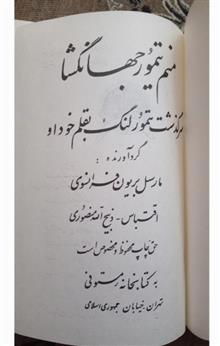 منم تیمور جهانگشا
سرگذشت تیمور لنگ بقلم خود او
گردآورنده :
مارسل بریون فرانسوی
اقتباس - ذبیح الله منصوری
حق چاپ محفوظ و مخصوص است
به کتابخانه مستوفی
تهران خیابان جمهوری اسلامی